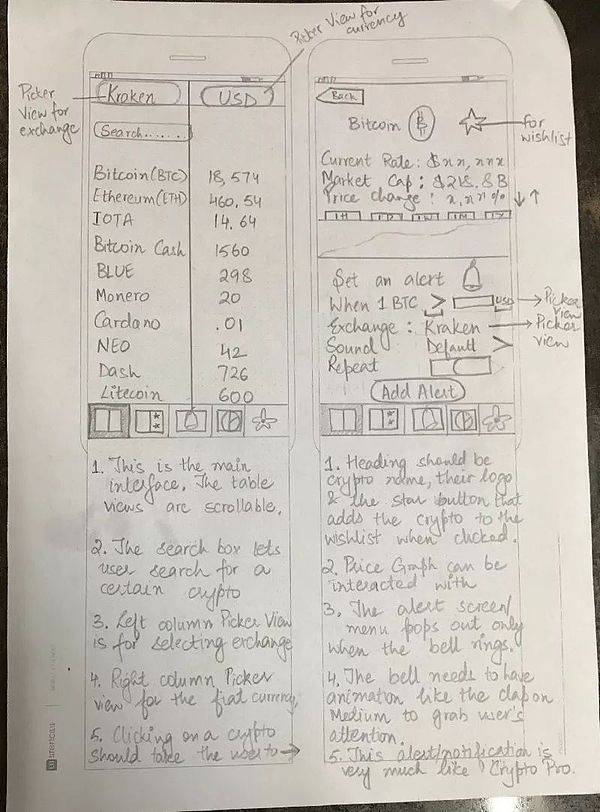 Picker View for currency
Picker View for exchange
Kraken USD
Search......
Bitcoin(BTC) 18,574
Ethereum(ETH) 460,54
IOTA 14.64
Bitcoin Cash 1560
BLUE 298
Monero 20
Cardano .01
NEO 42
Dash 726
Litecoin 600
1. This is the main
interface. The table
views are scrollable.
2. The search box lets
user search for a
certain crypto
3. Left column Picker View
is for selecting exchange
4. Right column Picker
view for the fiat currency.
5. Clicking on a crypto
should take the user to →
Back
Bitcoin
for wishlist
Current Rate: $xx,xxx
Market Cap: $218.8B
Price change: x.xx% ↓↑
1H 1D 1W 1M 1Y
Set an alert
When 1 BTC > USD → Picker View
Exchange: Kraken → Picker view
Sound Default >
Repeat
Add Alert
1. Heading should be
crypto name, their logo
& the star button that
adds the crypto to the
wishlist when clicked.
2. Price Graph can be
interacted with
3. The alert screen/
menu pops out only
when the bell rings.
4. The bell needs to have
animation like the clap on
Medium to grab user's
attention.
5. This alert/notification is
very much like Crypto Pro.